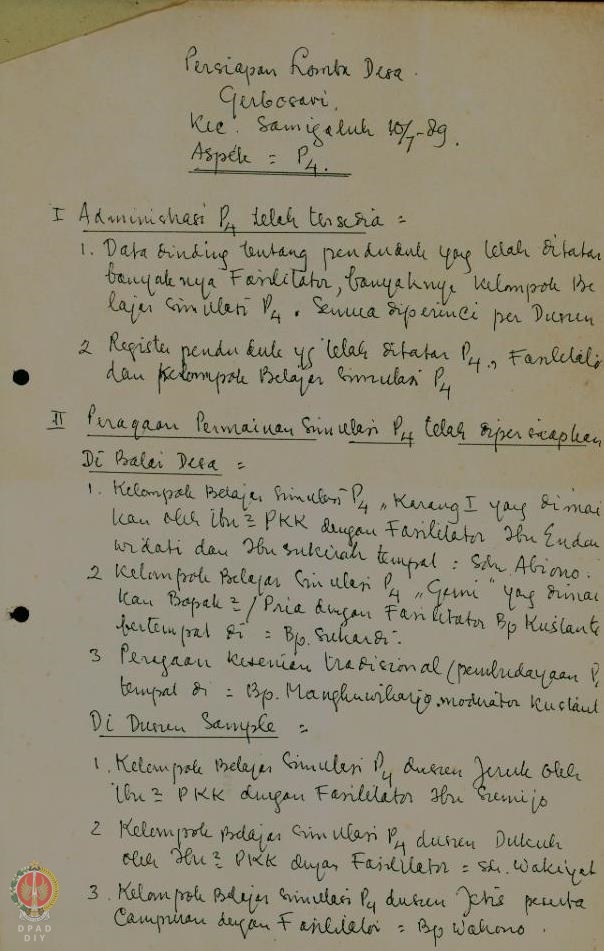 Persiapan Lomba Desa.
Gerbosari.
Kec. Samigaluh 10/7-89.
Aspek = P4.
I Administrasi P4 telah tersedia =
1. Data dinding tentang penduduk yang telah ditatar
banyaknya Fasilitator, banyaknya Kelompok Be
lajar Simulasi P4. Semua diperinci per Dusun
2 Register penduduk yg telah ditatar P4., Fasilitato
dan Kelompok Belajar Simulasi P4
II Peragaan Permainan Simulasi P4 telah dipersiapkan
Di Balai Desa =
1. Kelompok Belajar Simulasi P4 „Karang I yang dimai
kan oleh Ibu2 PKK dengan Fasilitator Ibu Endan
widati dan Ibu Sukirah tempat = Sdr. Abiono.
2 Kelompok Belajar Simulasi P4 „Gemi" yang dimai
kan Bapak2/Pria dengan Fasilitator Bp Kustanto
bertempat di = Bp. Suhardi.
3 Peragaan kesenian tradisional (pembudayaan P
tempat di = Bp. Mangkuwiharjo. moderator Kustant
Di Dusun Sample =
1. Kelompok Belajar Simulasi P4 dusun Jeruk oleh
Ibu2 PKK dengan Fasilitator Ibu Sumijo
2 Kelompok Belajar Simulasi P4 dusun Dukuh
oleh Ibu2 PKK dengan Fasilitator = Sdr. Wakiyat
3. Kelompok Belajar Simulasi P4 dusun Jetis peserta
Campuran dengan Fasilitator = Bp Wahono.
DPAD
DIY